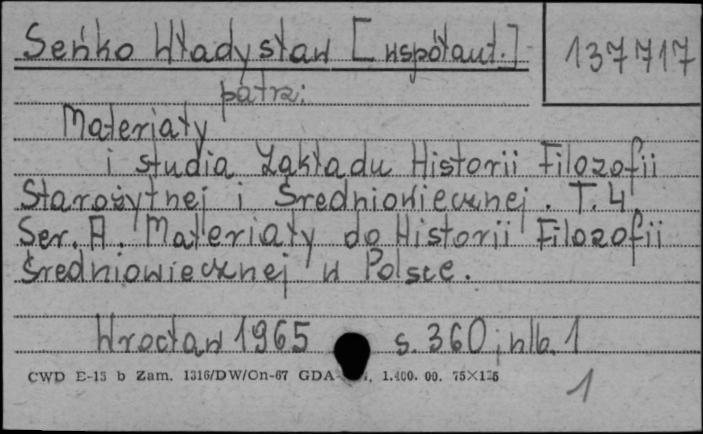 Seńko Władysław [współaut.]
137717
patrz:
Materiały
i studia Zakładu Historii Filozofii
Starożytnej i Średniowiecznej. T. 4.
Ser. A. Materiały do Historii Filozofii
Średniowiecznej w Polsce.
Wrocław 1965 s. 360, nlb. 1
CWD E-15 b Zam. 1316/DW/On-67 GDA 1.400.00. 75×125
1